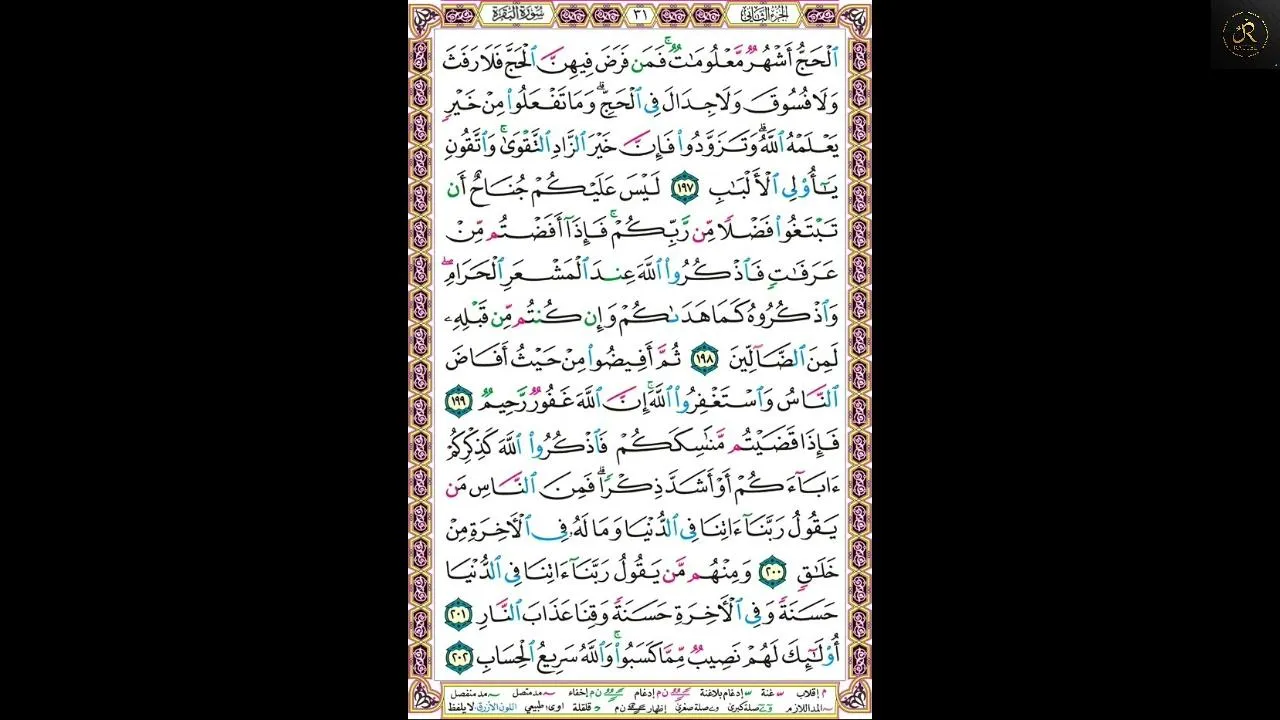 الجزء الثاني ٣١ سورة البقرة
ٱلۡحَجُّ أَشۡهُرٞ مَّعۡلُومَٰتٞۚ فَمَن فَرَضَ فِيهِنَّ ٱلۡحَجَّ فَلَا رَفَثَ
وَلَا فُسُوقَ وَلَا جِدَالَ فِي ٱلۡحَجِّۗ وَمَا تَفۡعَلُواْ مِنۡ خَيۡرٖ
يَعۡلَمۡهُ ٱللَّهُۗ وَتَزَوَّدُواْ فَإِنَّ خَيۡرَ ٱلزَّادِ ٱلتَّقۡوَىٰۚ وَٱتَّقُونِ
يَٰٓأُوْلِي ٱلۡأَلۡبَٰبِ ١٩٧ لَيۡسَ عَلَيۡكُمۡ جُنَاحٌ أَن
تَبۡتَغُواْ فَضۡلٗا مِّن رَّبِّكُمۡۚ فَإِذَآ أَفَضۡتُم مِّنۡ
عَرَفَٰتٖ فَٱذۡكُرُواْ ٱللَّهَ عِندَ ٱلۡمَشۡعَرِ ٱلۡحَرَامِۖ
وَٱذۡكُرُوهُ كَمَا هَدَىٰكُمۡ وَإِن كُنتُم مِّن قَبۡلِهِۦ
لَمِنَ ٱلضَّآلِّينَ ١٩٨ ثُمَّ أَفِيضُواْ مِنۡ حَيۡثُ أَفَاضَ
ٱلنَّاسُ وَٱسۡتَغۡفِرُواْ ٱللَّهَۚ إِنَّ ٱللَّهَ غَفُورٞ رَّحِيمٞ ١٩٩
فَإِذَا قَضَيۡتُم مَّنَٰسِكَكُمۡ فَٱذۡكُرُواْ ٱللَّهَ كَذِكۡرِكُمۡ
ءَابَآءَكُمۡ أَوۡ أَشَدَّ ذِكۡرٗاۗ فَمِنَ ٱلنَّاسِ مَن
يَقُولُ رَبَّنَآ ءَاتِنَا فِي ٱلدُّنۡيَا وَمَا لَهُۥ فِي ٱلۡأٓخِرَةِ مِنۡ
خَلَٰقٖ ٢٠٠ وَمِنۡهُم مَّن يَقُولُ رَبَّنَآ ءَاتِنَا فِي ٱلدُّنۡيَا
حَسَنَةٗ وَفِي ٱلۡأٓخِرَةِ حَسَنَةٗ وَقِنَا عَذَابَ ٱلنَّارِ ٢٠١
أُوْلَٰٓئِكَ لَهُمۡ نَصِيبٞ مِّمَّا كَسَبُواْۚ وَٱللَّهُ سَرِيعُ ٱلۡحِسَابِ ٢٠٢
م إقلاب غنة إدغام بلاغنة ن م إدغام ن م إخفاء مد متصل مد منفصل
المد اللازم صلة كبرى صلة صغرى إظهار ن م قلقلة اوى: طبيعي اللون الأزرق: لا يلفظ